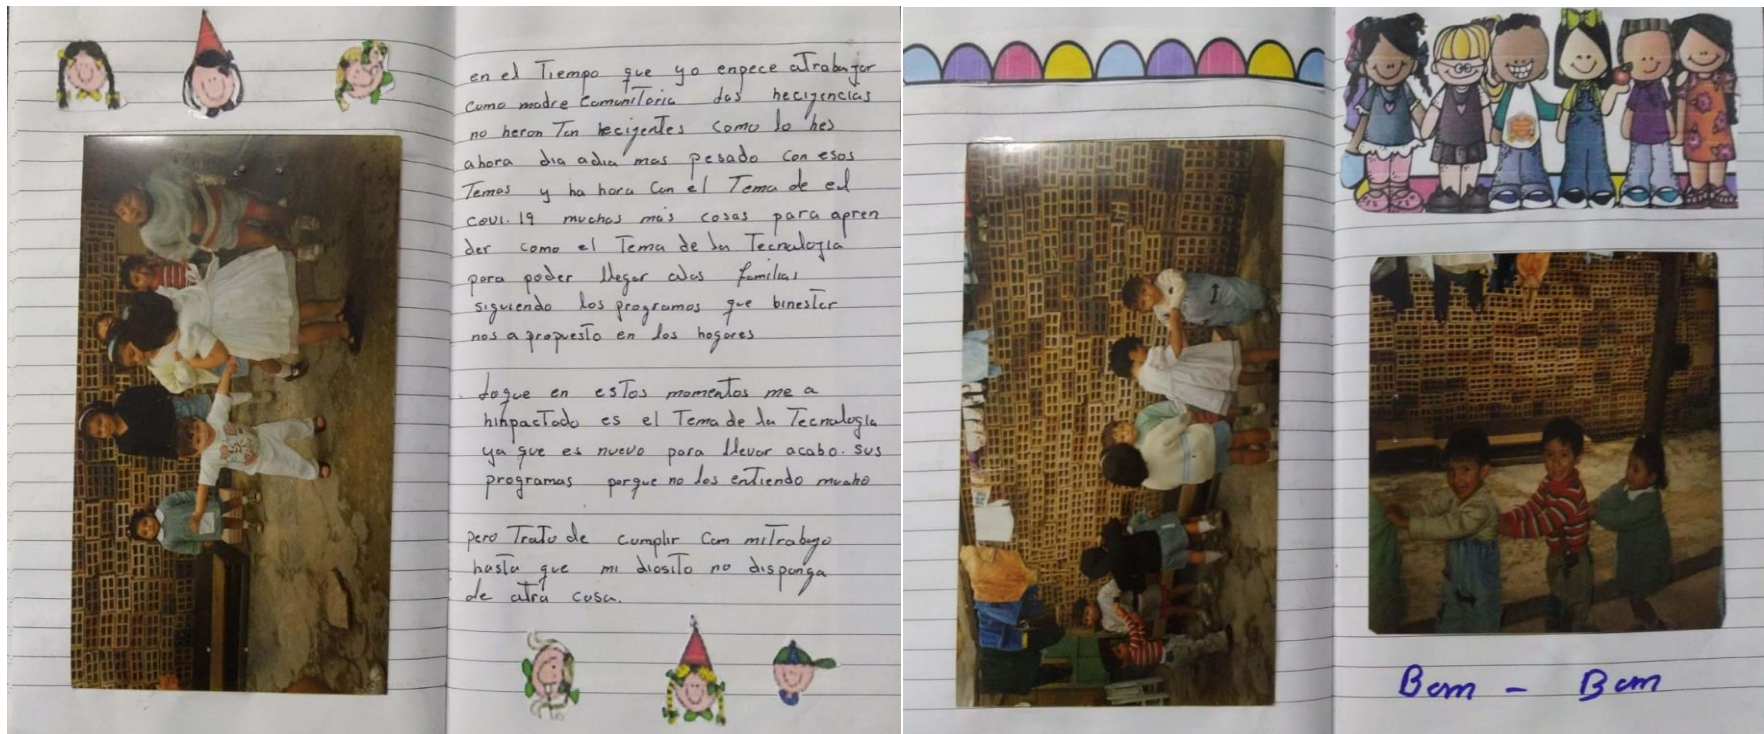 en el Tiempo que yo enpece atrabajar
como madre comunitaria las hecigencias
no heron Tan hecigentes como lo hes
ahora dia adia mas pesado con esos
Temas y ha hora con el Tema de el
covi.19 muchas mas cosas para apren
der como el Tema de la Tecnalogia
para poder llegar alas familias
siguiendo los programas que binester
nos a propuesto en los hogares
loque en estos momentos me a
hinpactado es el Tema de la Tecnalogia
ya que es nuevo para llevar acabo. sus
programas porque no los entiendo mucho
pero Trato de cumplir con miTrabajo
hasta que mi diosito no disponga
de otra cosa.
Bam - Bam